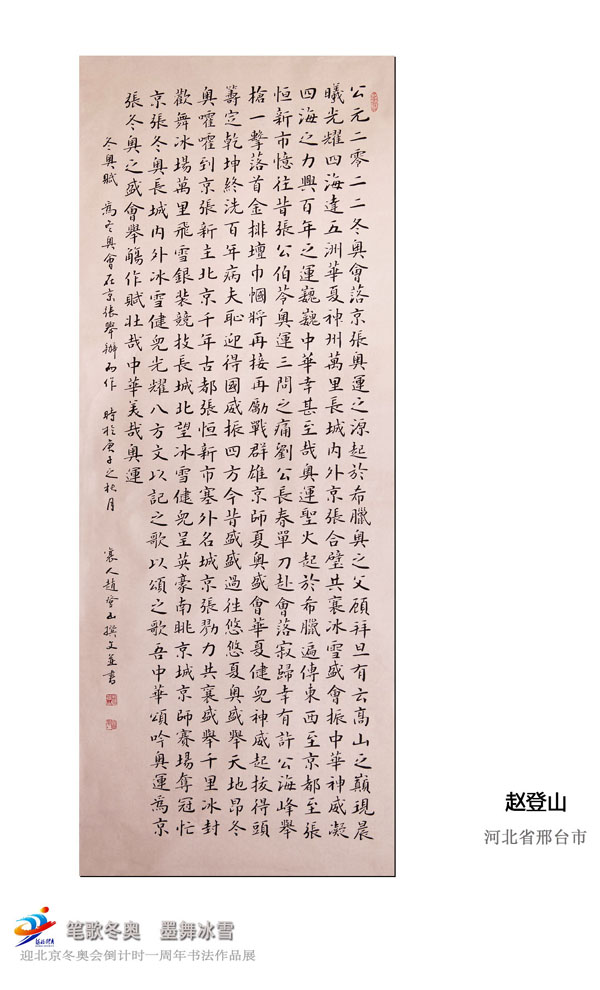 公元二零二二冬奧會落京張奧運之源起於希臘奧之父顧拜旦有云高山之巔現晨
曦光耀四海達五洲華夏神州萬里長城内外京張合璧共襄冰雪盛會振中華神威凝
四海之力興百年之運巍巍中華幸甚至哉奧運聖火起於希臘遍傳東西至京都至張
恒新市憶往昔張公伯苓奧運三問之痛劉公長春單刀赴會落寂歸幸有許公海峰舉
槍一擊落首金排壇巾幗將再接再勵戰群雄京師夏奧盛會華夏健兒神威起拔得頭
籌定乾坤終洗百年病夫恥迎得國威振四方今昔盛盛過往悠悠夏奧盛舉天地昂冬
奧嚯嚯到京張新主北京千年古都張恒新市塞外名城京張勠力共襄盛舉千里冰封
歡舞冰場萬里飛雪銀裝競技長城北望冰雪健兒呈英豪南眺京城京師賽場奪冠忙
京張冬奧長城内外冰雪健兒光耀八方文以記之歌以頌之歌吾中華頌吟奧運爲京
張冬奧之盛會舉觴作賦壯哉中華美哉奧運
冬奧賦 爲冬奧會在京張舉辦而作 時於庚子之秋月 襄人趙登山撰文並書
赵登山
河北省邢台市
笔歌冬奥 墨舞冰雪
迎北京冬奥会倒计时一周年书法作品展